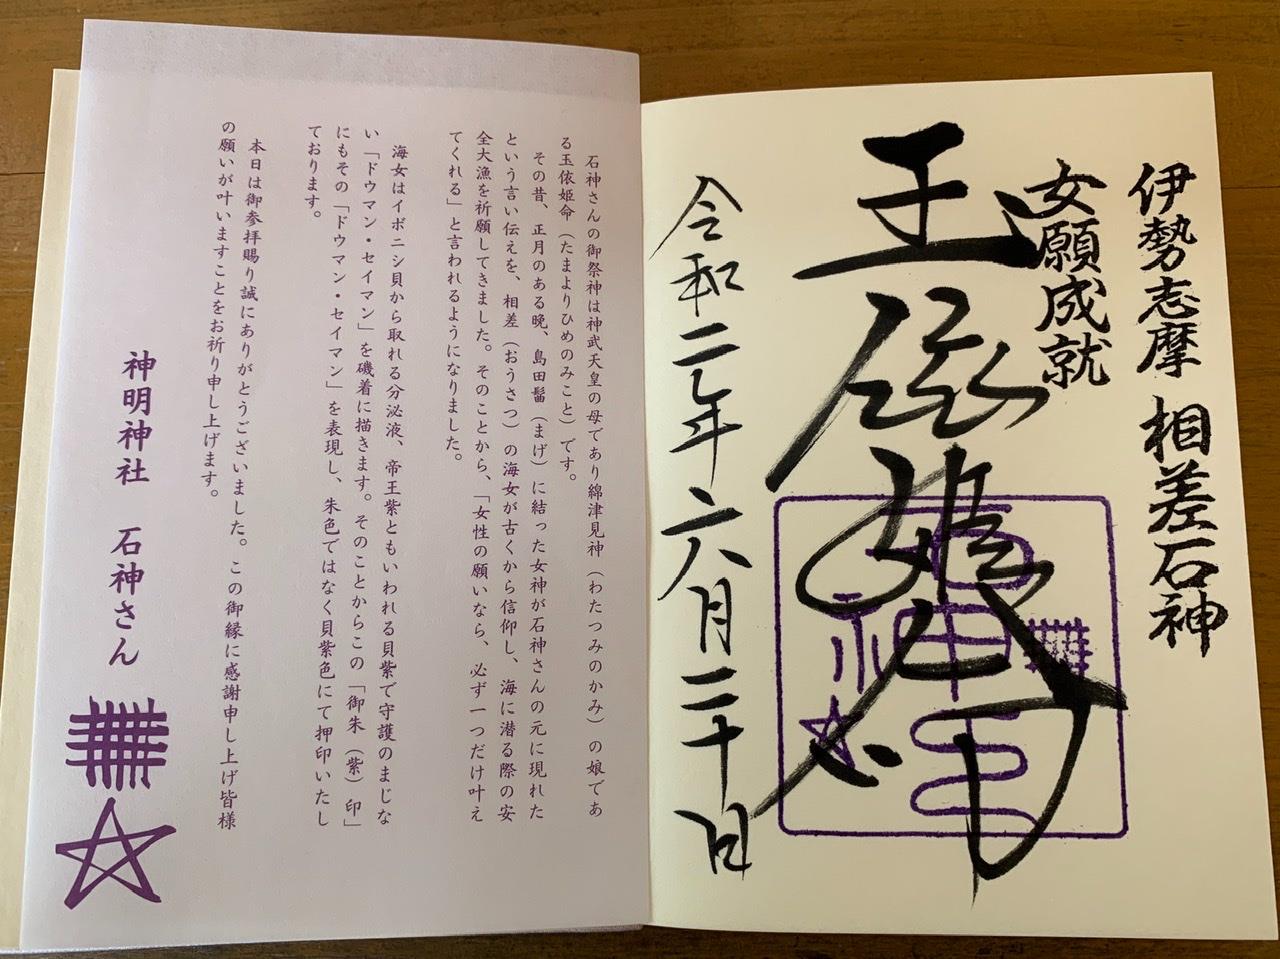 伊勢志摩 相差石神
女願成就
玉依姫命
令和二年六月二十日
石神
石神さんの御祭神は神武天皇の母であり綿津見神（わたつみのかみ）の娘であ
る玉依姫命（たまよりひめのみこと）です。
その昔、正月のある晩、島田髷（まげ）に結った女神が石神さんの元に現れた
という言い伝えを、相差（おうさつ）の海女が古くから信仰し、海に潜る際の安
全大漁を祈願してきました。そのことから、「女性の願いなら、必ず一つだけ叶え
てくれる」と言われるようになりました。
海女はイボニシ貝から取れる分泌液、帝王紫ともいわれる貝紫で守護のまじな
い「ドウマン・セイマン」を磯着に描きます。そのことからこの「御朱（紫）印」
にもその「ドウマン・セイマン」を表現し、朱色ではなく貝紫色にて押印いたし
ております。
本日は御参拝賜り誠にありがとうございました。この御縁に感謝申し上げ皆様
の願いが叶いますことをお祈り申し上げます。
神明神社 石神さん